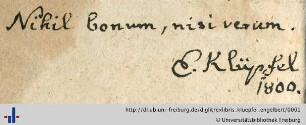 Nihil bonum, nisi verum.
E. Klüpfel
1800.
http://dl.ub.uni-freiburg.de/diglit/exlibris_kluepfel_engelbert/0001
© Universitätsbibliothek Freiburg